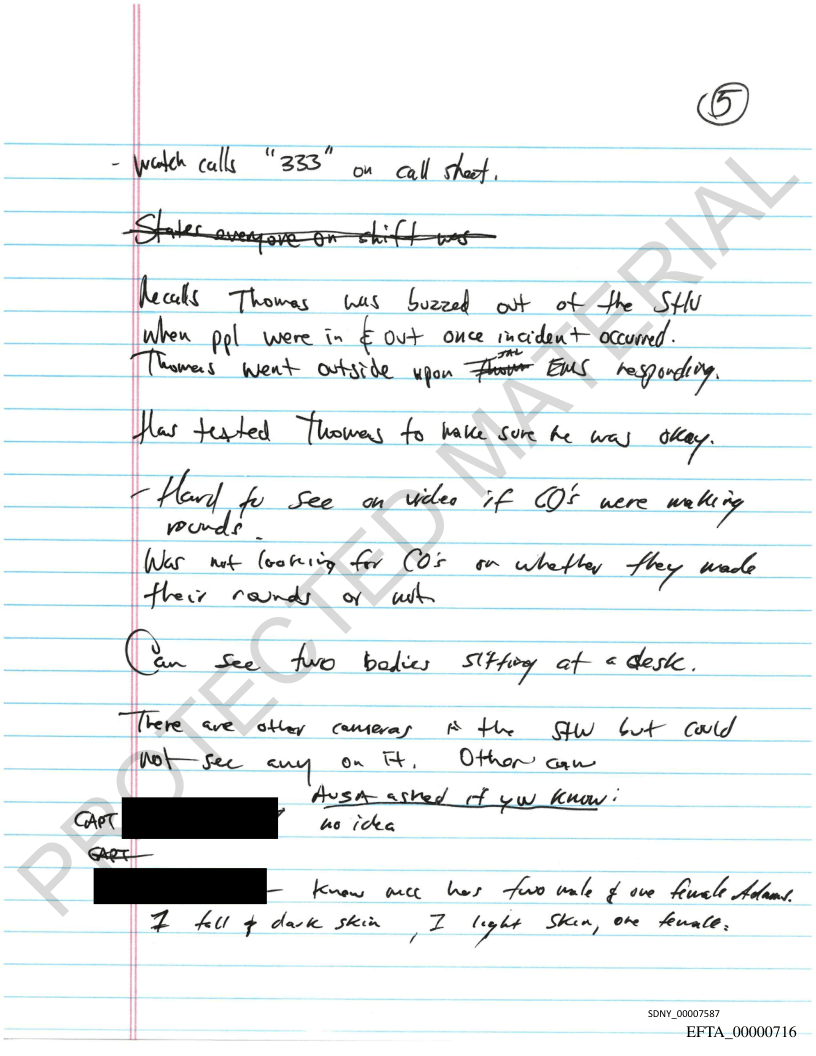 5
- watch calls "333" on call sheet.
States everyone on shift was
Recalls Thomas was buzzed out of the SHU
when ppl were in & out once incident occurred.
Thomas went outside upon EMS responding.
Has texted Thomas to make sure he was okay.
- Hard to see on video if CO's were making
rounds.
Was not looking for CO's on whether they made
their rounds or not
Can see two bodies sitting at a desk.
There are other cameras in the SHU but could
not see any on it. Other cam
AUSA asked if you know:
CAPT no idea
CAPT
- Know MCC has two male & one female Adams.
1 tall & dark skin, 1 light skin, one female.
PROTECTED MATERIAL
SDNY_00007587
EFTA_00000716